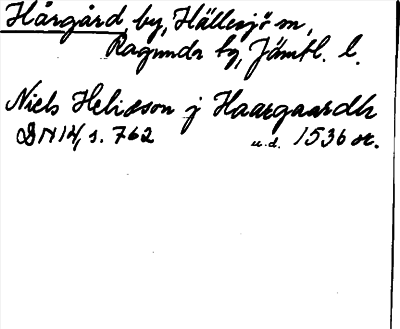 Hårgård by, Hällesjö sn,
Ragunda tg, Jämtl. l.
Niels Helieson j Haargaardh
DN 14, s. 762 u.d. 1536 or.